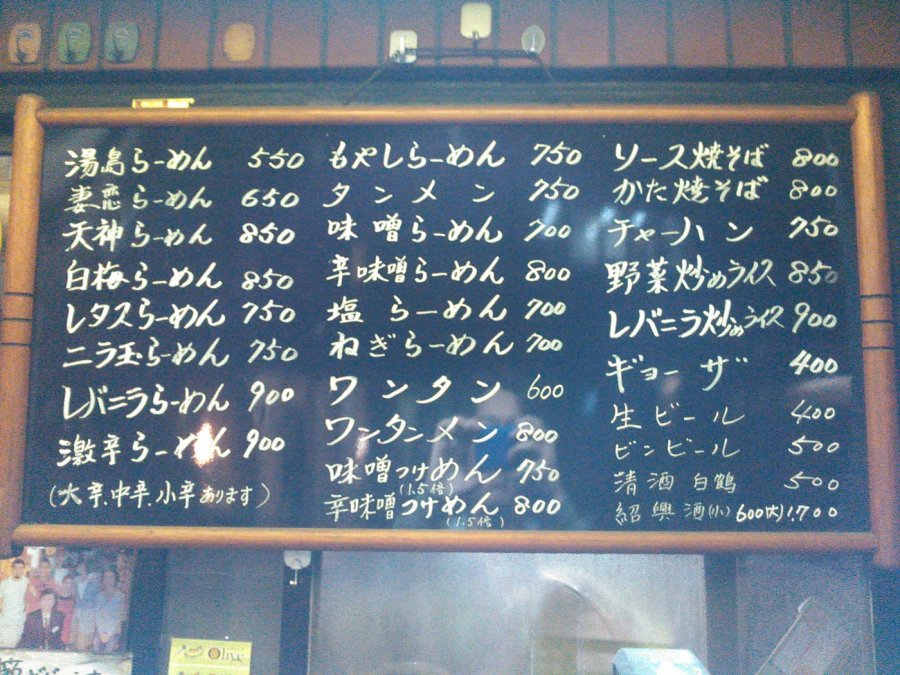 湯島らーめん 550
妻恋らーめん 650
天神らーめん 850
白梅らーめん 850
レタスらーめん 750
ニラ玉らーめん 750
レバニラらーめん 900
激辛らーめん 900
(大辛、中辛、小辛あります)
もやしらーめん 750
タンメン 750
味噌らーめん 700
辛味噌らーめん 800
塩らーめん 700
ねぎらーめん 700
ワンタン 600
ワンタンメン 800
味噌つけめん 750
(1.5倍)
辛味噌つけめん 800
(1.5倍)
ソース焼そば 800
かた焼そば 800
チャーハン 750
野菜炒めライス 850
レバニラ炒めライス 900
ギョーザ 400
生ビール 400
ビンビール 500
清酒白鶴 500
紹興酒(小)600(大)1,700
Olive